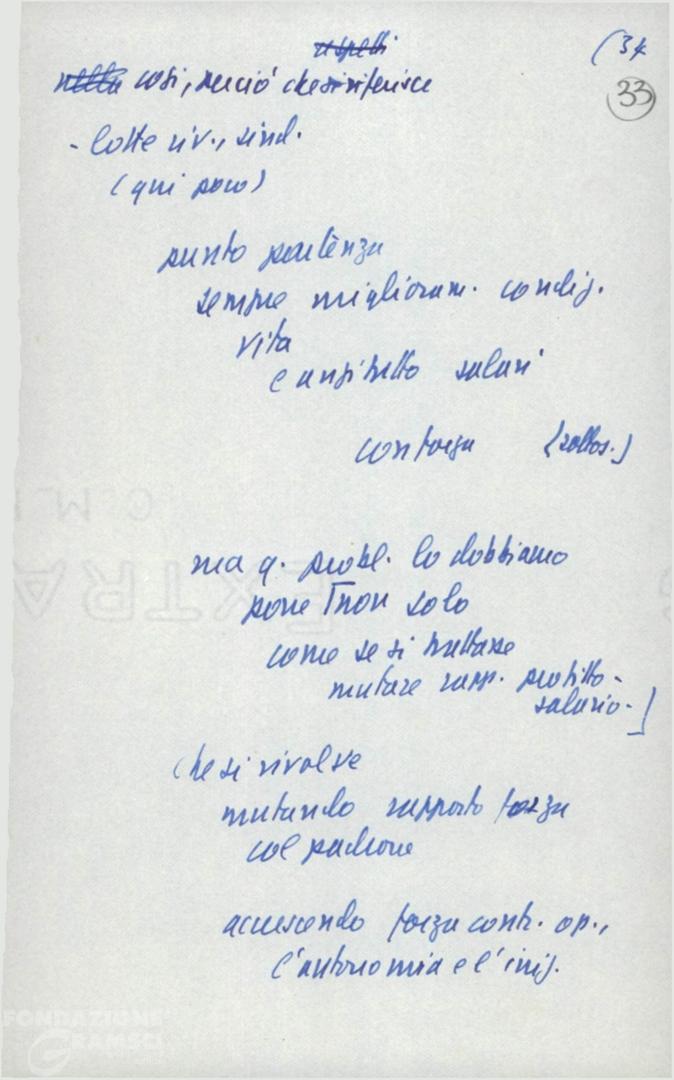 (34
33
così, perciò che si riferisce
- lotte riv., sind.
(qui poco)
punto partenza
sempre miglioram. condiz.
vita
e anzitutto salari
con forza (sottos.)
ma q. probl. lo dobbiamo
porre [non solo
come se si trattasse
mutare rapp. profitto-
salario-]
che si risolve
mutando rapporto forza
col padrone
accrescendo forza contr. op.,
l'autonomia e l'iniz.
EXTRA
FONDAZIONE
GRAMSCI